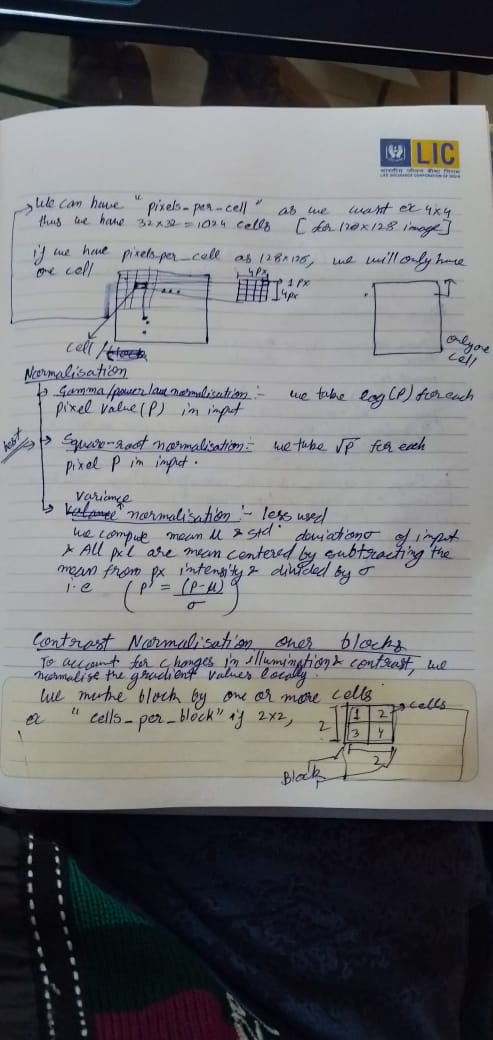 LIC
भारतीय जीवन बीमा निगम
LIFE INSURANCE CORPORATION OF INDIA
We can have "pixels-per-cell" as we want ex 4x4
thus we have 32x32 = 1024 cells [for 128x128 image]
if we have pixels per cell as 128x128, we will only have
one cell
4px
1 px
4px
cell /
only one
cell
Normalisation
Gamma/power law normalisation :- we take log(P) for each
pixel value (P) in input
best
Square-root normalisation :- we take √P for each
pixel P in input.
variance
normalisation :- less used
we compute mean μ & std. deviation σ of input
& All pxl are mean centered by subtracting the
mean from px intensity & divided by σ
i.e (P' = (P-μ)/σ)
Contrast Normalisation over blocks
To account for changes in illumination & contrast, we
normalise the gradient values locally.
We make block by one or more cells
ex "cells-per-block" if 2x2,
2
1 2
3 4
cells
2
Block